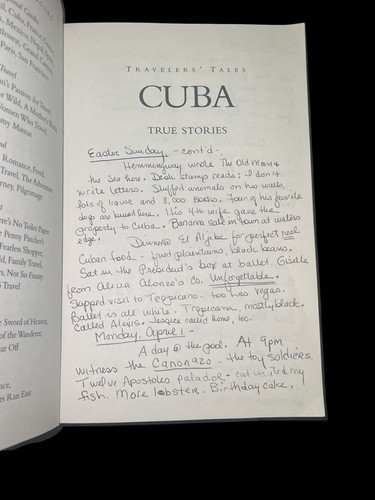 onal Guides
il, Cuba, France,
Mexico, Nepal, Spain
thwest, Grand
Paris, San Francisco
Travel
an's Passion for Travel
e Wild, A Mother's
Women Who Travel,
tsy Mamas
Romance, Food,
Travel, The Adventure
rney, Pilgrimage
re's No Toilet Paper
e Penny Pincher's
Fearless Shopper,
ld, Family Travel,
r, Not So Funny
Travel
he Sword of Heaven,
of the Wanderer,
ar Off
nce,
rs Ran East
TRAVELERS' TALES
CUBA
TRUE STORIES
Easter Sunday - cont'd -
Hemmingway wrote The Old Man &
the Sea here. Desk stamp reads: I don't
write letters. Stuffed animals on his walls,
lots of liquor and 8,000 books. Four of his favorite
dogs are buried here. His 4th wife gave the
property to Cuba. Banana sale in town at waters
edge.
Dinner @ El Aljibe for perfect real
Cuban food - fried plaintains, black beans.
Sat in the President's box at ballet. Giselle
from Alicia Alonso's Co. Unforgettable.
Skipped visit to Tropicana - too Las Vegas.
Ballet is all white. Tropicana, mostly black.
Called Alexis. Jessica called home, too.
Monday, April 1 -
A day @ the pool. At 9pm
witness the Canonazo - the toy soldiers.
Twelve Apostoles palador - cat visited my
fish. More lobster. Birthday cake.